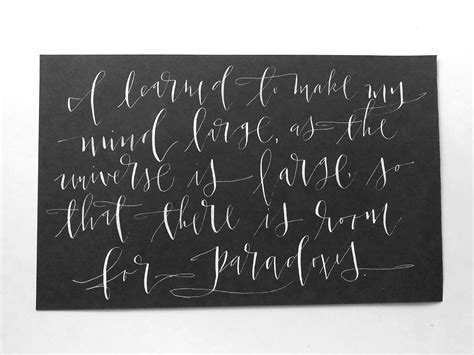 I learned to make my
mind large, as the
universe is large, so
that there is room
for paradoxes.